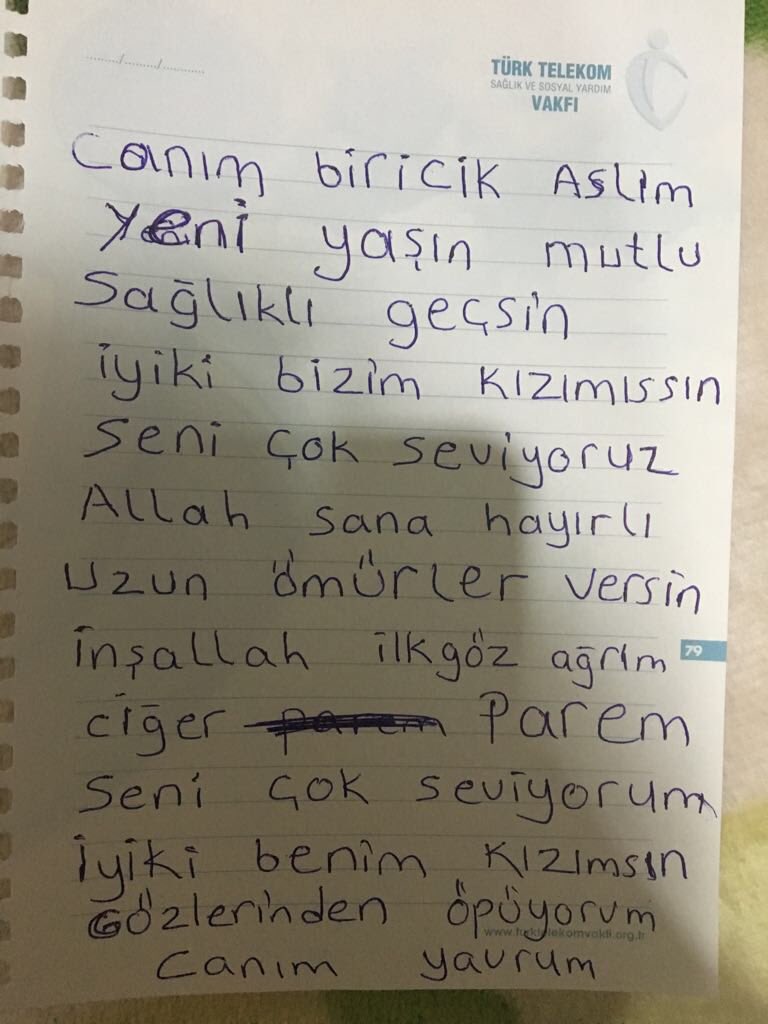 ....../....../...........
TÜRK TELEKOM
SAĞLIK VE SOSYAL YARDIM
VAKFI
Canım biricik Aslım
Yeni yaşın mutlu
Sağlıklı geçsin
iyiki bizim kızımıssın
Seni çok seviyoruz
Allah sana hayırlı
Uzun ömürler versin
inşallah ilkgöz ağrım
79
ciğer parem Parem
Seni çok seviyorum
iyiki benim kızımsın
Gözlerinden öpüyorum
www.turktelekomvakfi.org.tr
Canım yavrum